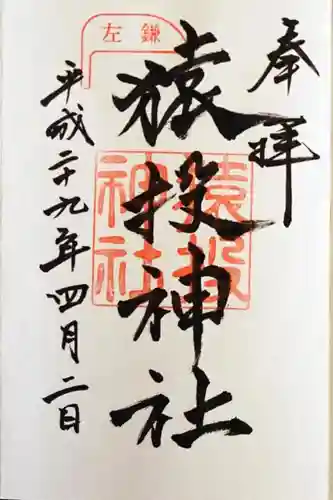 奉拝
猿投神社
左鎌
猿投神社
平成二十九年四月二日